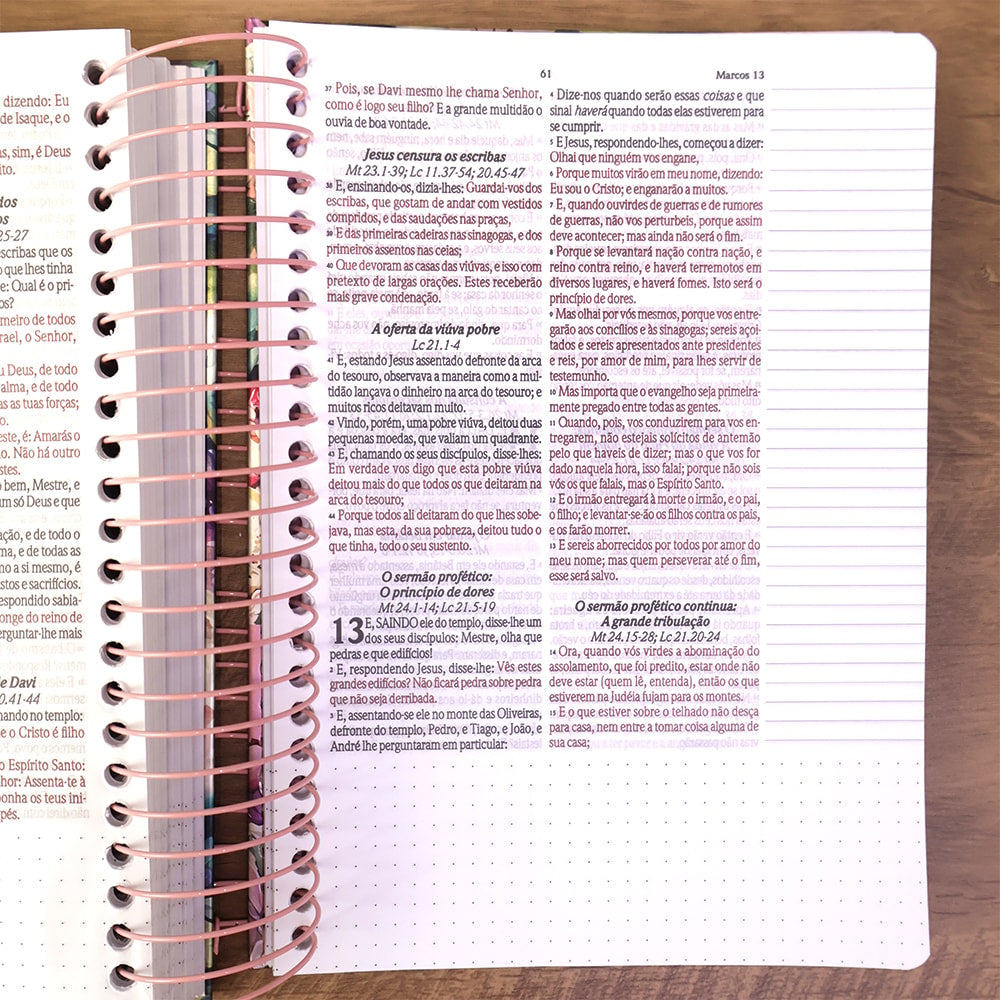 dizendo: Eu
de Isaque, e o
as, sim, é Deus
ito.
dos
os
25-27
scribas que os
o que lhes tinha
e: Qual é o pri-
os?
meiro de todos
rael, o Senhor,
u Deus, de todo
alma, e de todo
as as tuas forças;
o.
este, é: Amarás o
o. Não há outro
stes.
o bem, Mestre, e
um só Deus e que
ação, e de todo o
ma, e de todas as
omo a si mesmo, é
stos e sacrifícios.
respondido sabia-
onge do reino de
erguntar-lhe mais
e Davi
0.41-44
nando no templo:
e o Cristo é filho
o Espírito Santo:
hor: Assenta-te à
ponha os teus ini-
pés.
61
Marcos 13
37 Pois, se Davi mesmo lhe chama Senhor,
como é logo seu filho? E a grande multidão o
ouvia de boa vontade.
Jesus censura os escribas
Mt 23.1-39; Lc 11.37-54; 20.45-47
38 E, ensinando-os, dizia-lhes: Guardai-vos dos
escribas, que gostam de andar com vestidos
compridos, e das saudações nas praças,
39 E das primeiras cadeiras nas sinagogas, e dos
primeiros assentos nas ceias;
40 Que devoram as casas das viúvas, e isso com
pretexto de largas orações. Estes receberão
mais grave condenação.
A oferta da viúva pobre
Lc 21.1-4
41 E, estando Jesus assentado defronte da arca
do tesouro, observava a maneira como a mul-
tidão lançava o dinheiro na arca do tesouro; e
muitos ricos deitavam muito.
42 Vindo, porém, uma pobre viúva, deitou duas
pequenas moedas, que valiam um quadrante.
43 E, chamando os seus discípulos, disse-lhes:
Em verdade vos digo que esta pobre viúva
deitou mais do que todos os que deitaram na
arca do tesouro;
44 Porque todos ali deitaram do que lhes sobe-
java, mas esta, da sua pobreza, deitou tudo o
que tinha, todo o seu sustento.
O sermão profético:
O princípio de dores
Mt 24.1-14; Lc 21.5-19
13 E, SAINDO ele do templo, disse-lhe um
dos seus discípulos: Mestre, olha que
pedras e que edifícios!
2 E, respondendo Jesus, disse-lhe: Vês estes
grandes edifícios? Não ficará pedra sobre pedra
que não seja derribada.
3 E, assentando-se ele no monte das Oliveiras,
defronte do templo, Pedro, e Tiago, e João, e
André lhe perguntaram em particular:
4 Dize-nos quando serão essas coisas e que
sinal haverá quando todas elas estiverem para
se cumprir.
5 E Jesus, respondendo-lhes, começou a dizer:
Olhai que ninguém vos engane,
6 Porque muitos virão em meu nome, dizendo:
Eu sou o Cristo; e enganarão a muitos.
7 E, quando ouvirdes de guerras e de rumores
de guerras, não vos perturbeis, porque assim
deve acontecer; mas ainda não será o fim.
8 Porque se levantará nação contra nação, e
reino contra reino, e haverá terremotos em
diversos lugares, e haverá fomes. Isto será o
princípio de dores.
9 Mas olhai por vós mesmos, porque vos entre-
garão aos concílios e às sinagogas; sereis açoi-
tados e sereis apresentados ante presidentes
e reis, por amor de mim, para lhes servir de
testemunho.
10 Mas importa que o evangelho seja primeira-
mente pregado entre todas as gentes.
11 Quando, pois, vos conduzirem para vos en-
tregarem, não estejais solícitos de antemão
pelo que haveis de dizer; mas o que vos for
dado naquela hora, isso falai; porque não sois
vós os que falais, mas o Espírito Santo.
12 E o irmão entregará à morte o irmão, e o pai,
o filho; e levantar-se-ão os filhos contra os pais,
e os farão morrer.
13 E sereis aborrecidos por todos por amor do
meu nome; mas quem perseverar até o fim,
esse será salvo.
O sermão profético continua:
A grande tribulação
Mt 24.15-28; Lc 21.20-24
14 Ora, quando vós virdes a abominação do
assolamento, que foi predito, estar onde não
deve estar (quem lê, entenda), então os que
estiverem na Judéia fujam para os montes.
15 E o que estiver sobre o telhado não desça
para casa, nem entre a tomar coisa alguma de
sua casa;